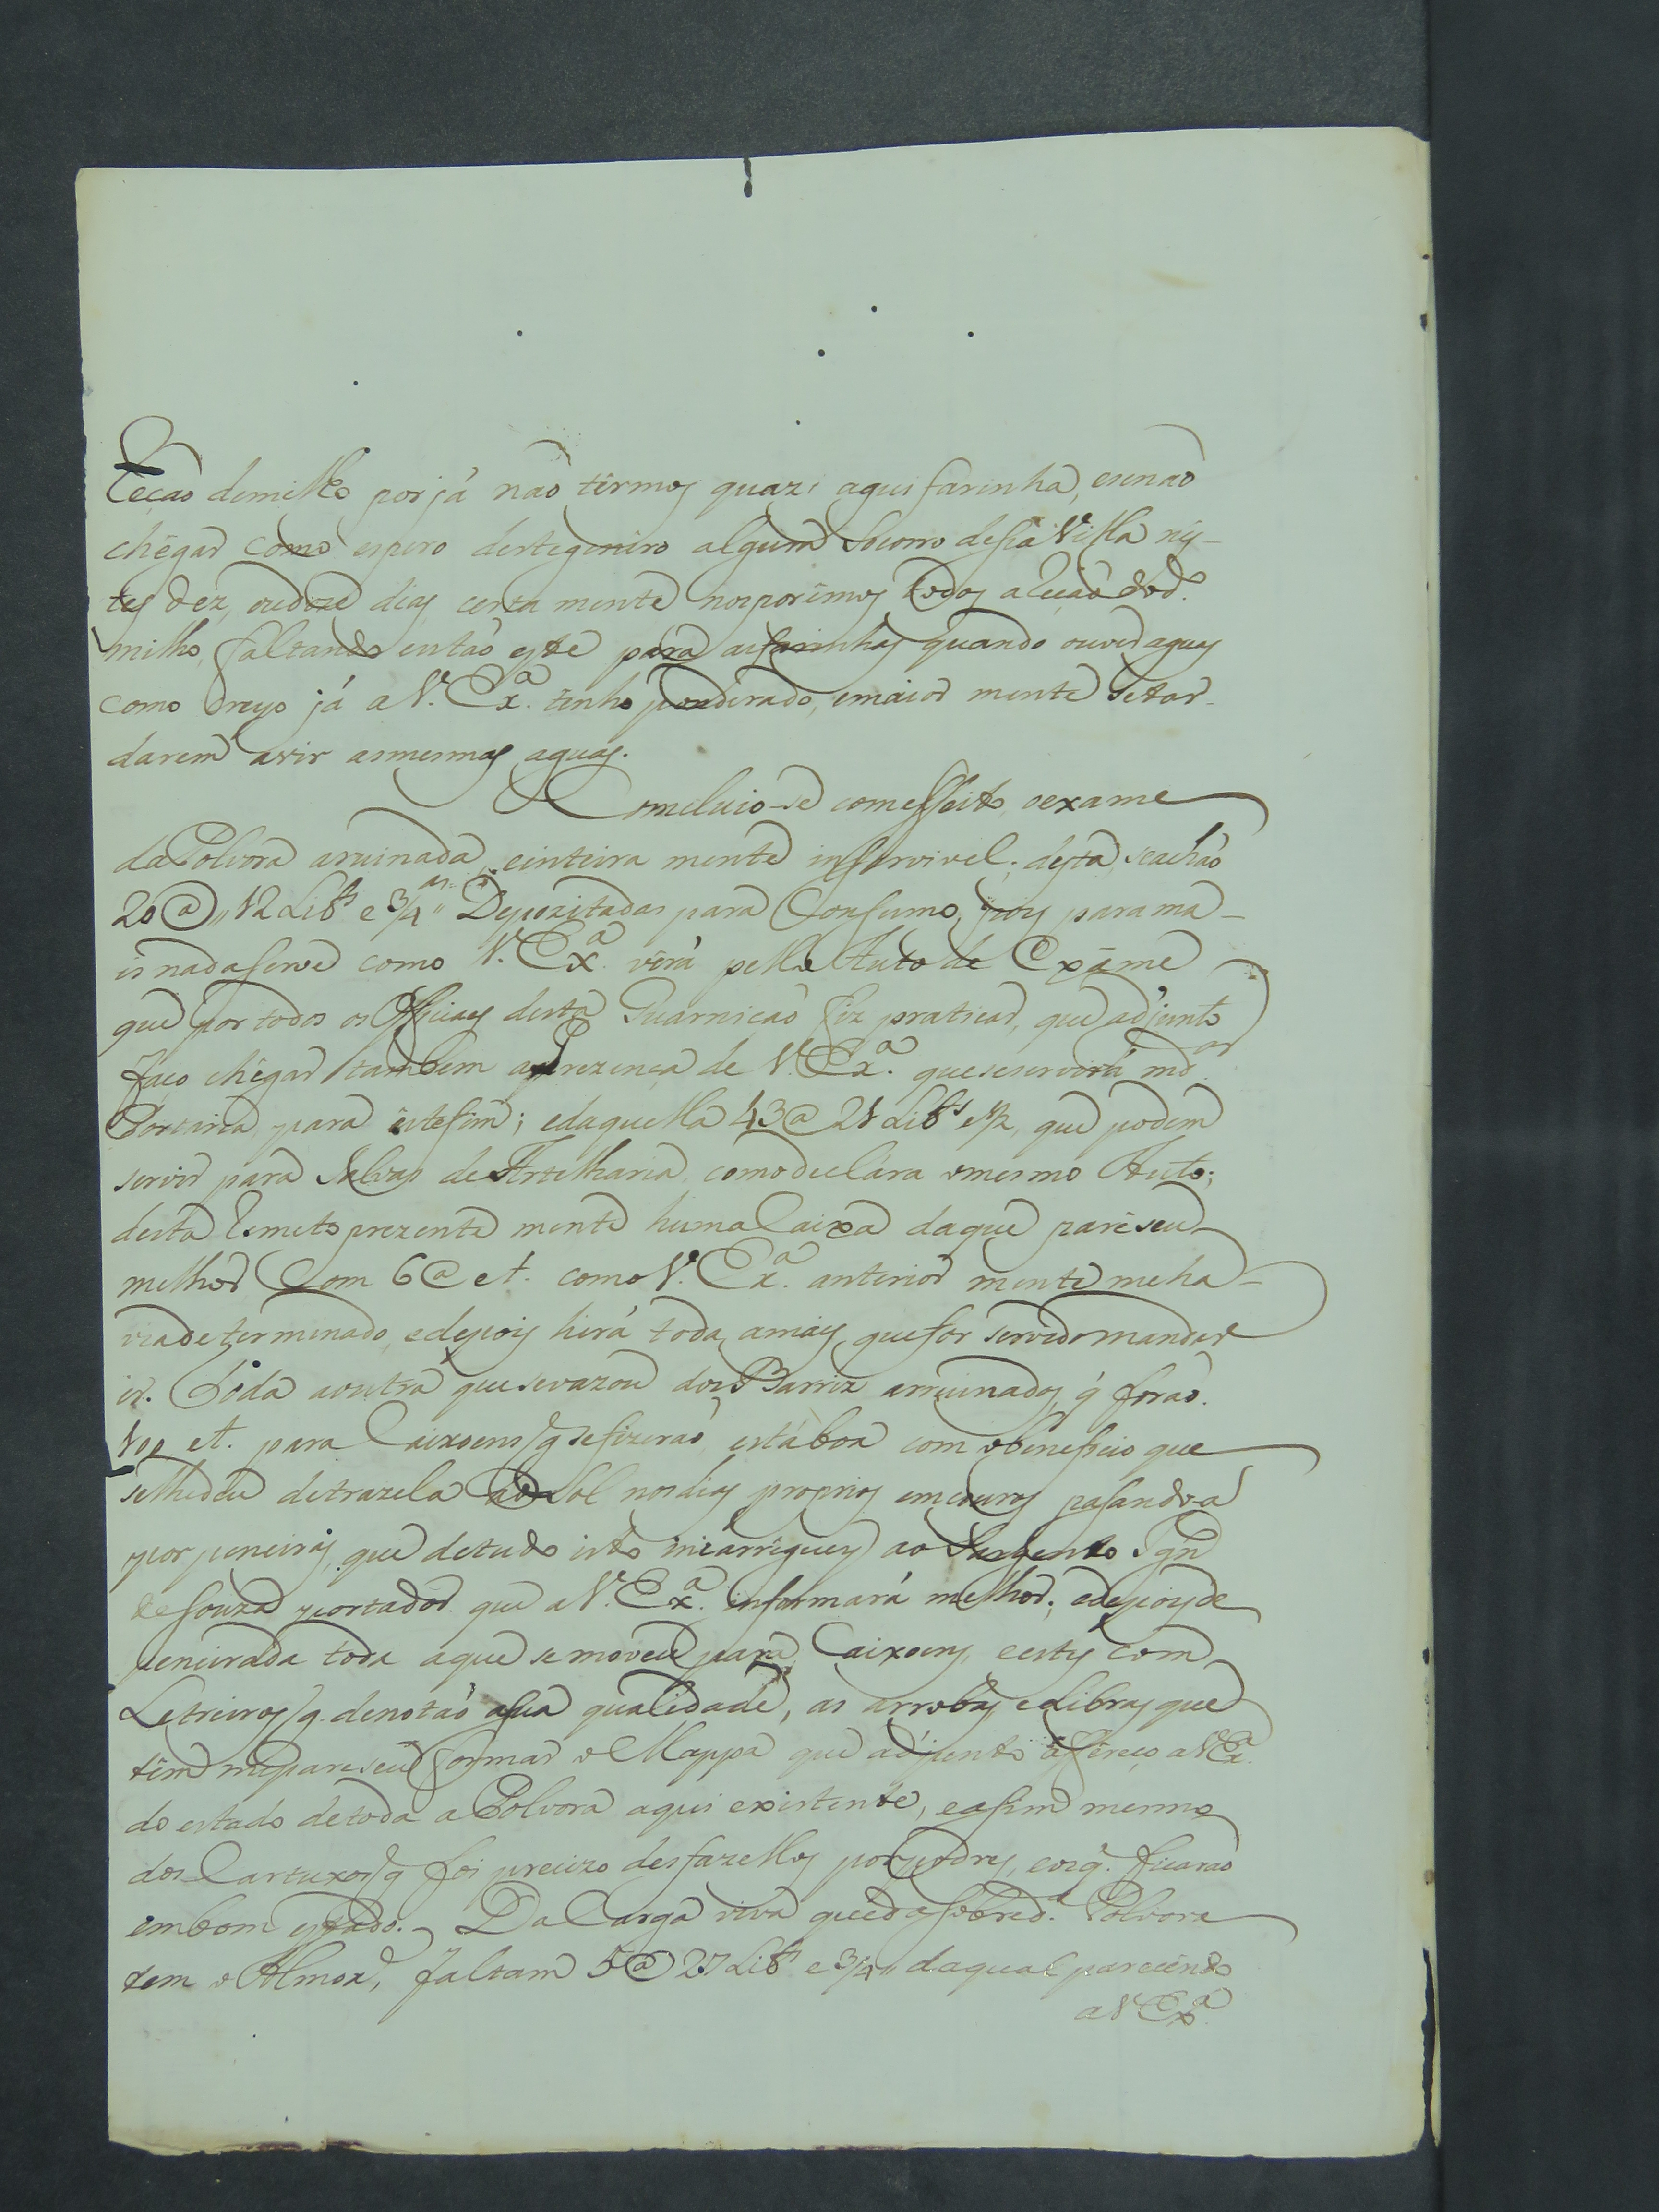 Leçaõ demilho por já naõ têrmos quazi aqui farinha, esenaõ
chêgar como espero destegenero algum Socorro desta Villa nes-
tes déz, oudoze dias, certa mente nosporêmos todos aleçaõ dod.º
milho, faltando entaõ este para asfarinhas quando ouver aguas
como já a V. Ex.ª tenho ponderado, emaior mente setar-
darem avir asmesmas aguas.
Concluio-se comeffeito oexame
daPolvora aruinada, einteira mente inservivel; desta seachaõ
20@ 12 Lib.s e 3/4 Depozitadas para Consumo, pois para ma-
is nadaserve como V. Ex.ª verá pello Auto de Exáme
que por todos os Officiaes desta Guarnicaõ fiz praticar, que adjunto
faço chêgar tambem aprezença de V. Ex.ª queseservirá md.ar
Portaria para estefim; edaquella 43@ 21 Lib.s e 1/2, que podem
servir para Salvas de Artelharia como declára omesmo Auto;
desta Remeto prezente mente huma Caixa daque pareseu
melhor Com 6@ et. como V. Ex.ª anterior mente meha-
viadeterminado, edepois hirá toda amais, quefor servido mandar
ir. Toda aoutra quesevazou dos Barriz arruinados, q̃ foraõ.
et. para Caixoens q̃ sefizeraõ, estáboa com obeneficio que
selhedeu detrazela ao Sol nosdias proprios emcouros pasando-a
por peneiras, que detudo isto ao Sargento Ign.º
deSouza portador que a V. Ex.ª informará melhor; edepois de
peneirada toda aque semoveu para Caixoens, eestes com
Letreiros q̃ denotaõ asua qualidade, as arrobas, eLibras que
têm mepareseu formar o Mappa que adjunto offêreço a V Ex.ª
do estado detoda a Polvora aqui existente, easim mesmo
dos Cartuxos q̃ foi precizo desfazellos por podres, eosq̃. ficaraõ
embom estado. Da Carga viva quedasobred.ª Polvora
tem o Almox.e, faltam 5@ 27 Lib.s e 3/4 daqual parecendo
a V Ex.ª